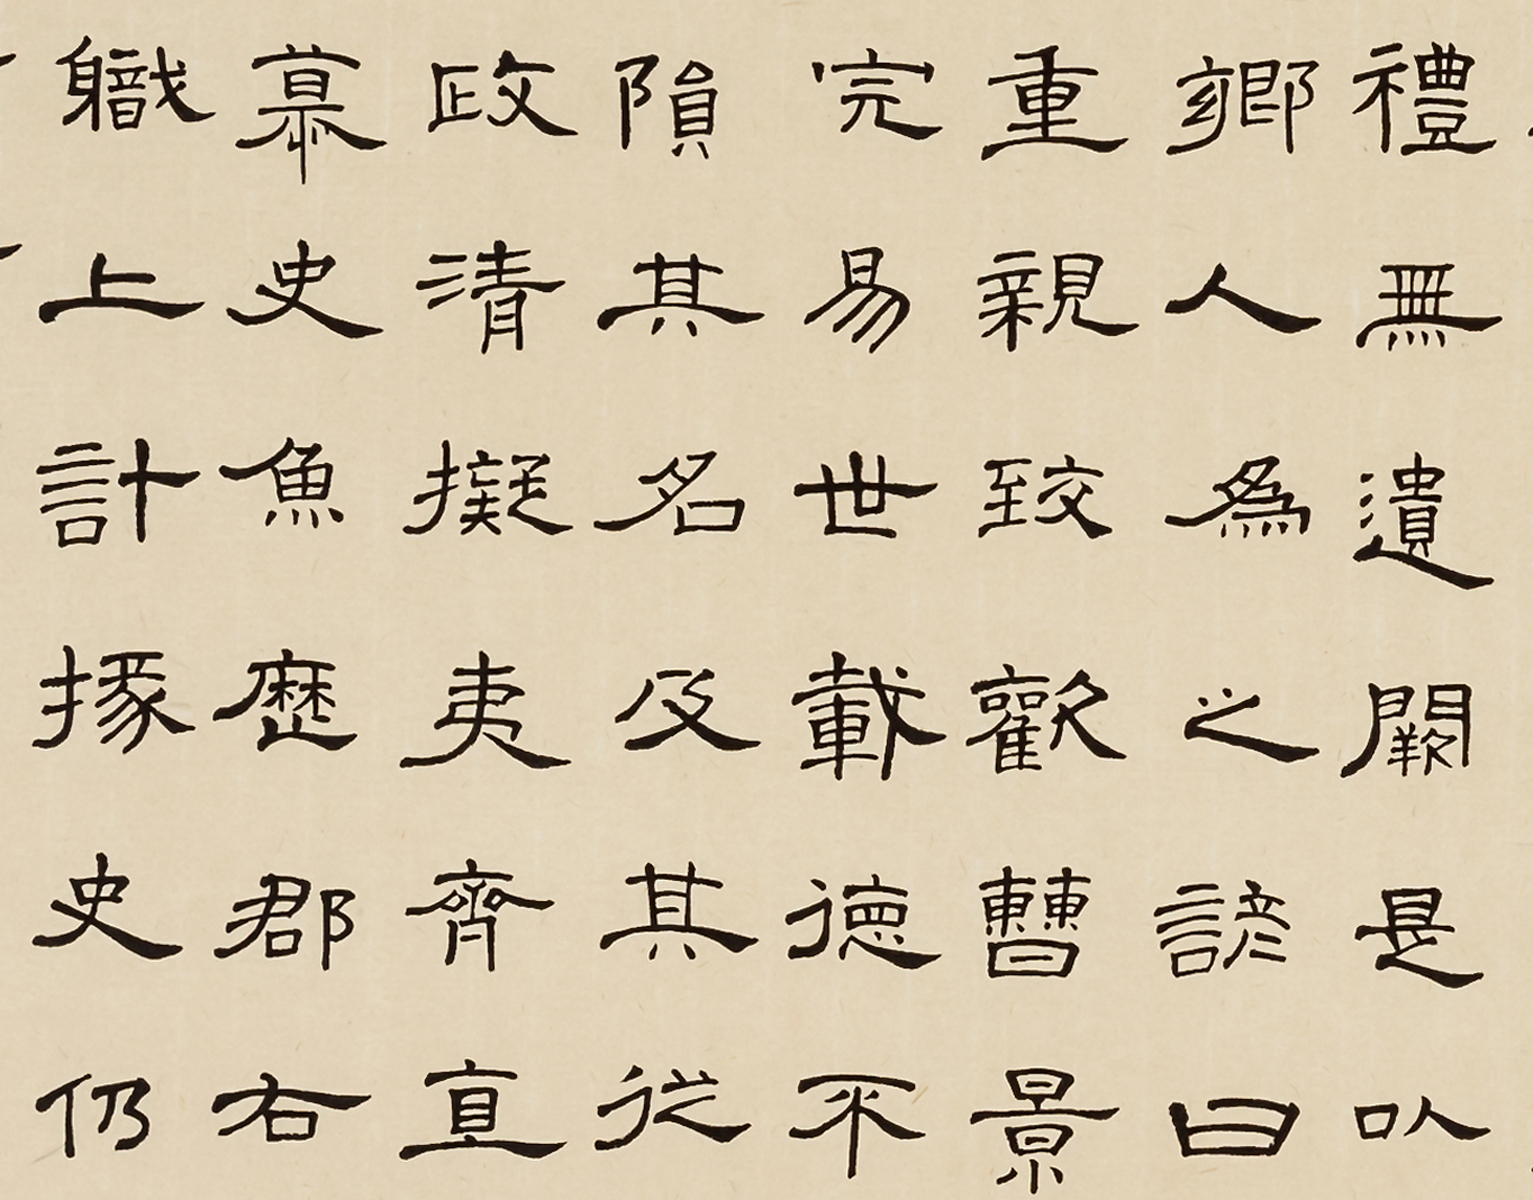 禮無遺闕是以
鄉人爲之諺曰
重親致歡曹景
完易世載德不
隕其名及其從
政清擬夷齊直
慕史魚歷郡右
職上計掾史仍